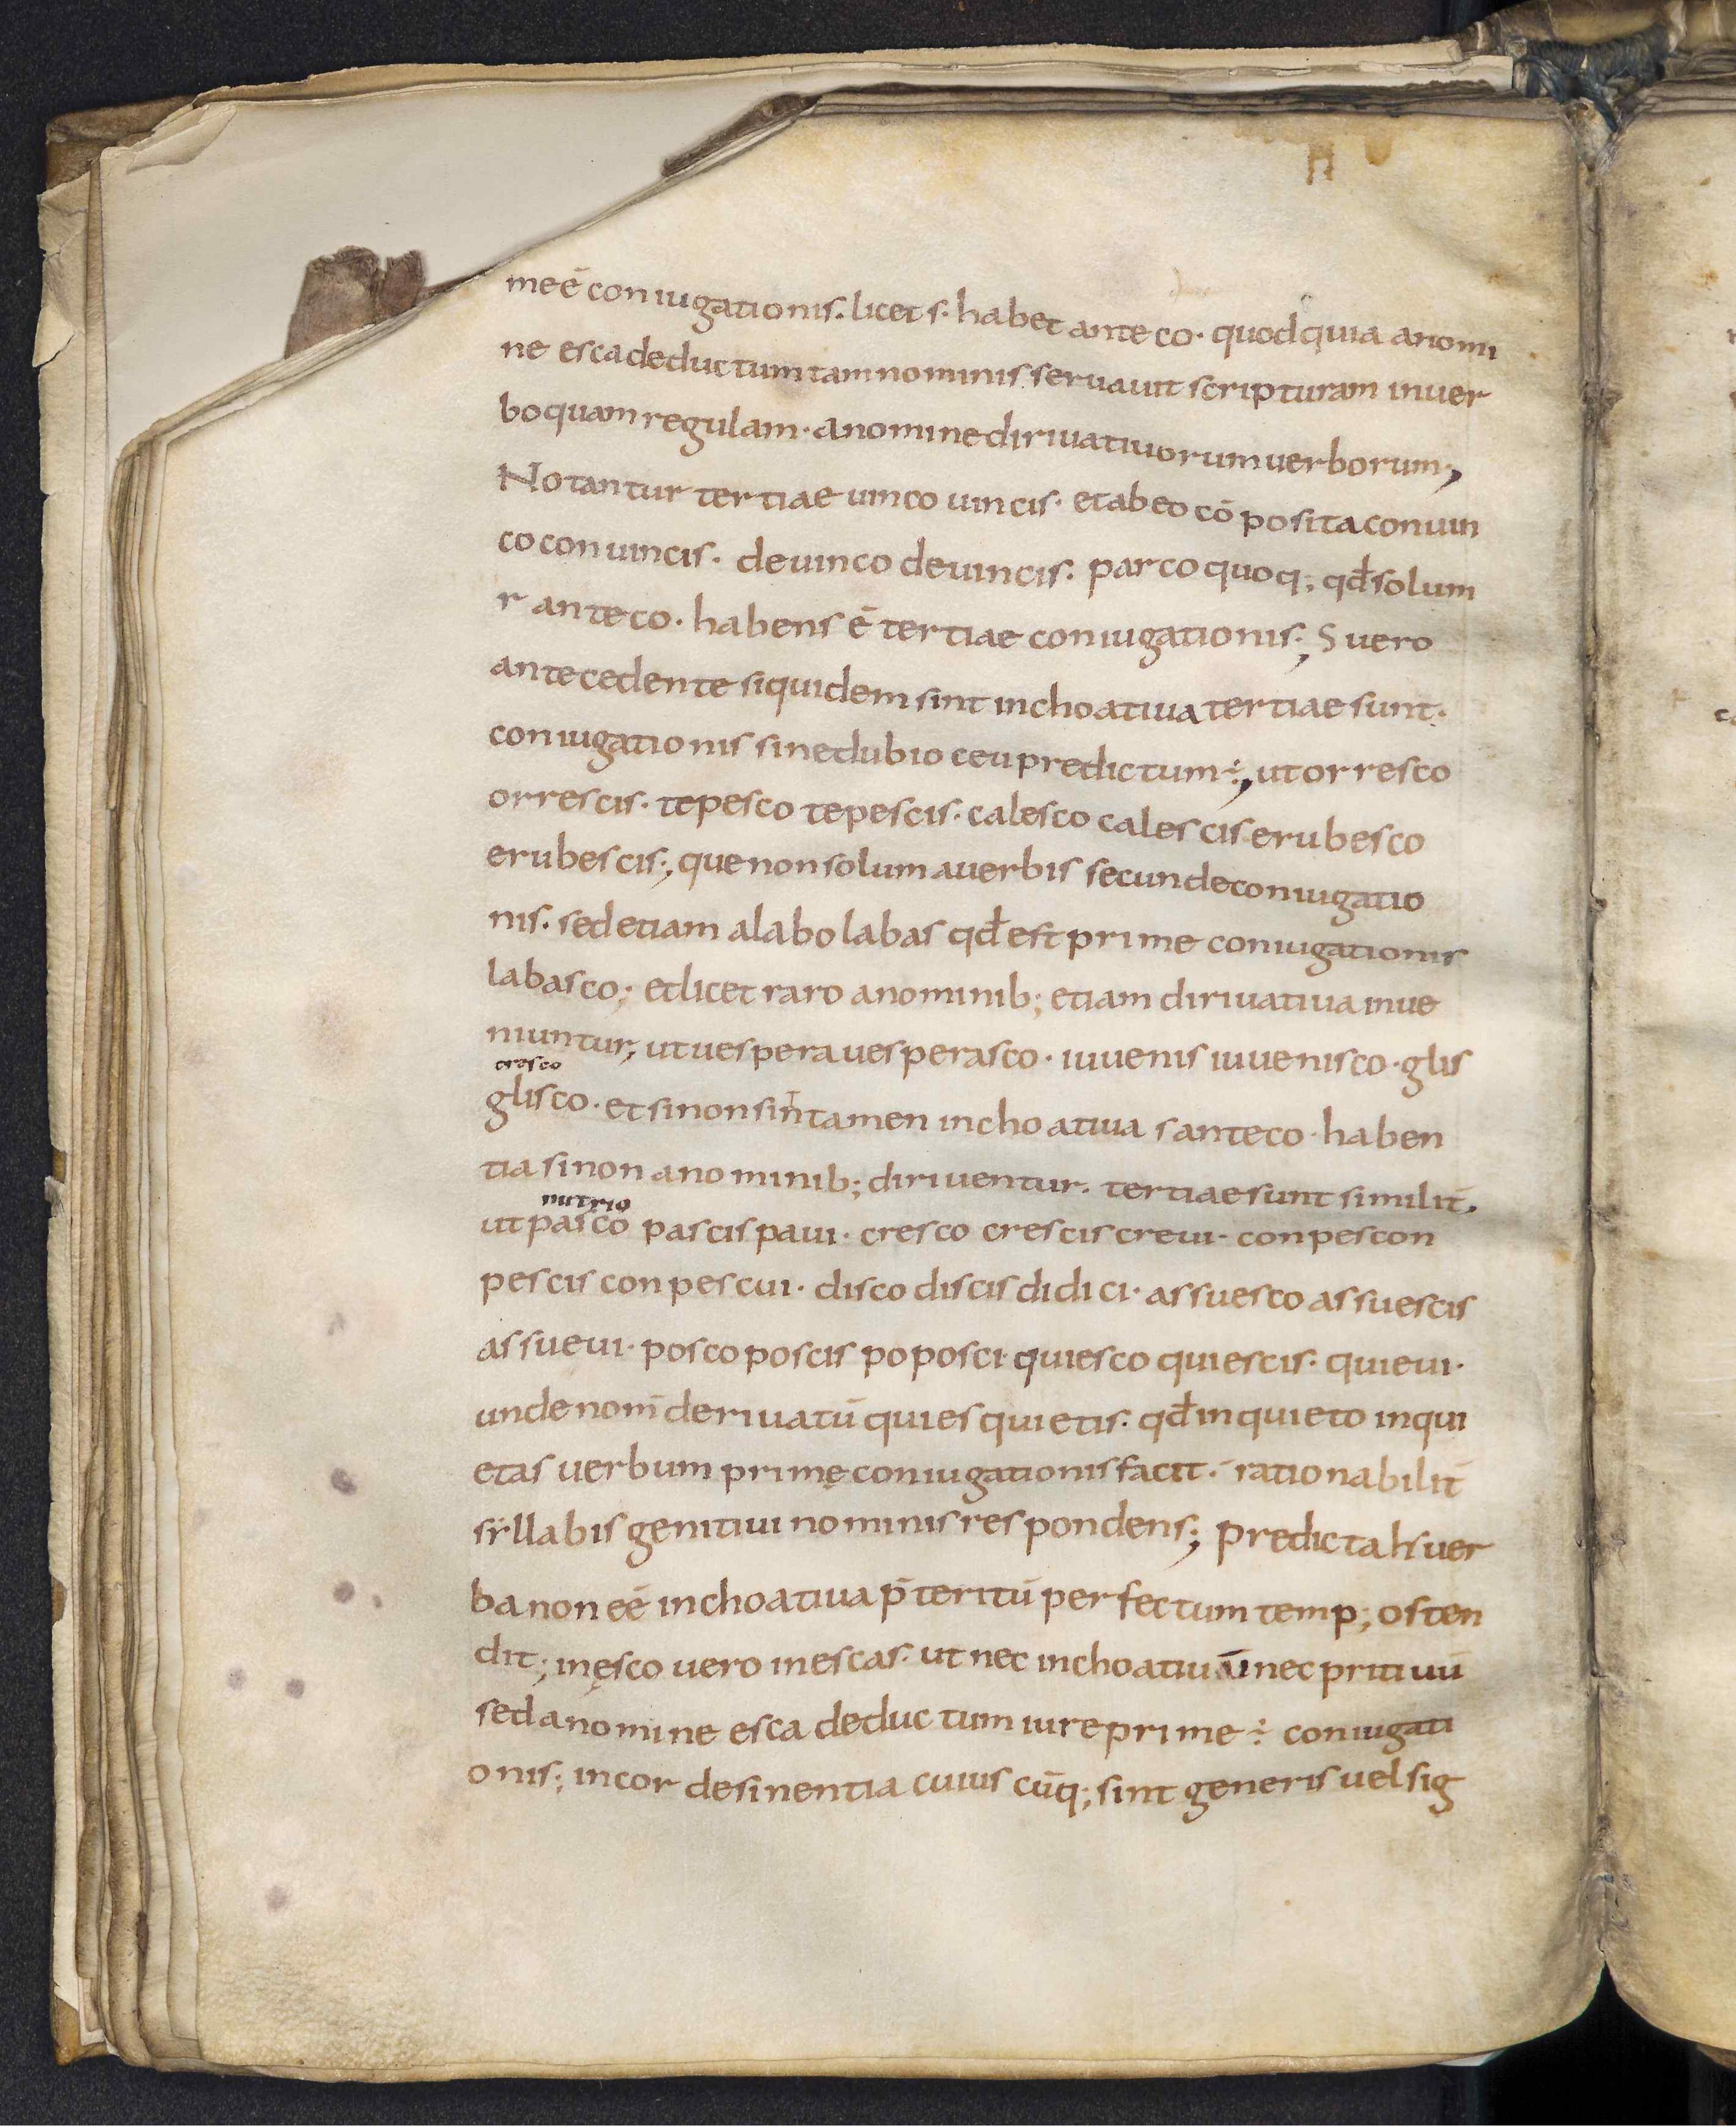 me ē coniugationis. licet s. habet ante co. quod quia a nomi
ne esca deductum tam nominis seruauit scripturam in uer
bo quam regulam. a nomine diriuatiuorum uerborum;
Notantur tertiae uinco uincis. et ab eo cōposita conuin
co conuincis. deuinco deuincis. parco quoq; qđ solum
r ante co. habens ē tertiae coniugationis; S uero
antecedente siquidem sint inchoatiua tertiae sunt.
coniugationis sine dubio ceu predictum ÷; ut orresco
orrescis. tepesco tepescis. calesco calescis erubesco
erubescis; que non solum a uerbis secunde coniugatio
nis. sed etiam a labo labas qđ est prime coniugationis
labasco; et licet raro a nominib; etiam diriuatiua inue
niuntur; ut uespera uesperasco. iuuenis iuuenisco. glis
cresco
glisco. et si non sint tamen inchoatiua s ante co. haben
tia si non a nominib; diriuentur. tertiae sunt similit̄.
nutrio
ut pasco pascis paui. cresco crescis creui. conpescon
pescis conpescui. disco discis didici. assuesco assuescis
assueui. posco poscis poposci quiesco quiescis. quieui.
unde nom̄ deriuatū quies quietis. qđ inquieto inqui
etas uerbum primę coniugationis facit. rationabilit̄
syllabis genitiui nominis respondens; predicta h uer
ba non eē inchoatiua p̄teritū perfectum temp; osten
dit; inęsco uero inescas. ut nec inchoatiuū nec pritiuū
sed a nomine esca deductum iure prime ÷ coniugati
onis; in cor desinentia cuius cūq; sint generis uel sig